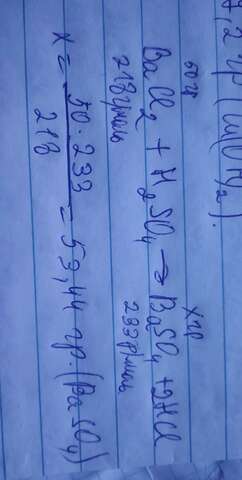 7,2 гр (Ca(OH)₂).
50 гр x гр
BaCl₂ + H₂SO₄ → BaSO₄ + 2HCl
218 г/моль 233 г/моль
x = 50·233 / 218 = 53,44 гр. (BaSO₄)